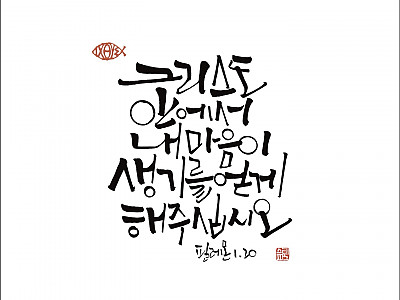 ΙΧΘΥΣ
그리스도
안에서
내 마음이
생기를 얻게
해주십시오
필레몬 1.20